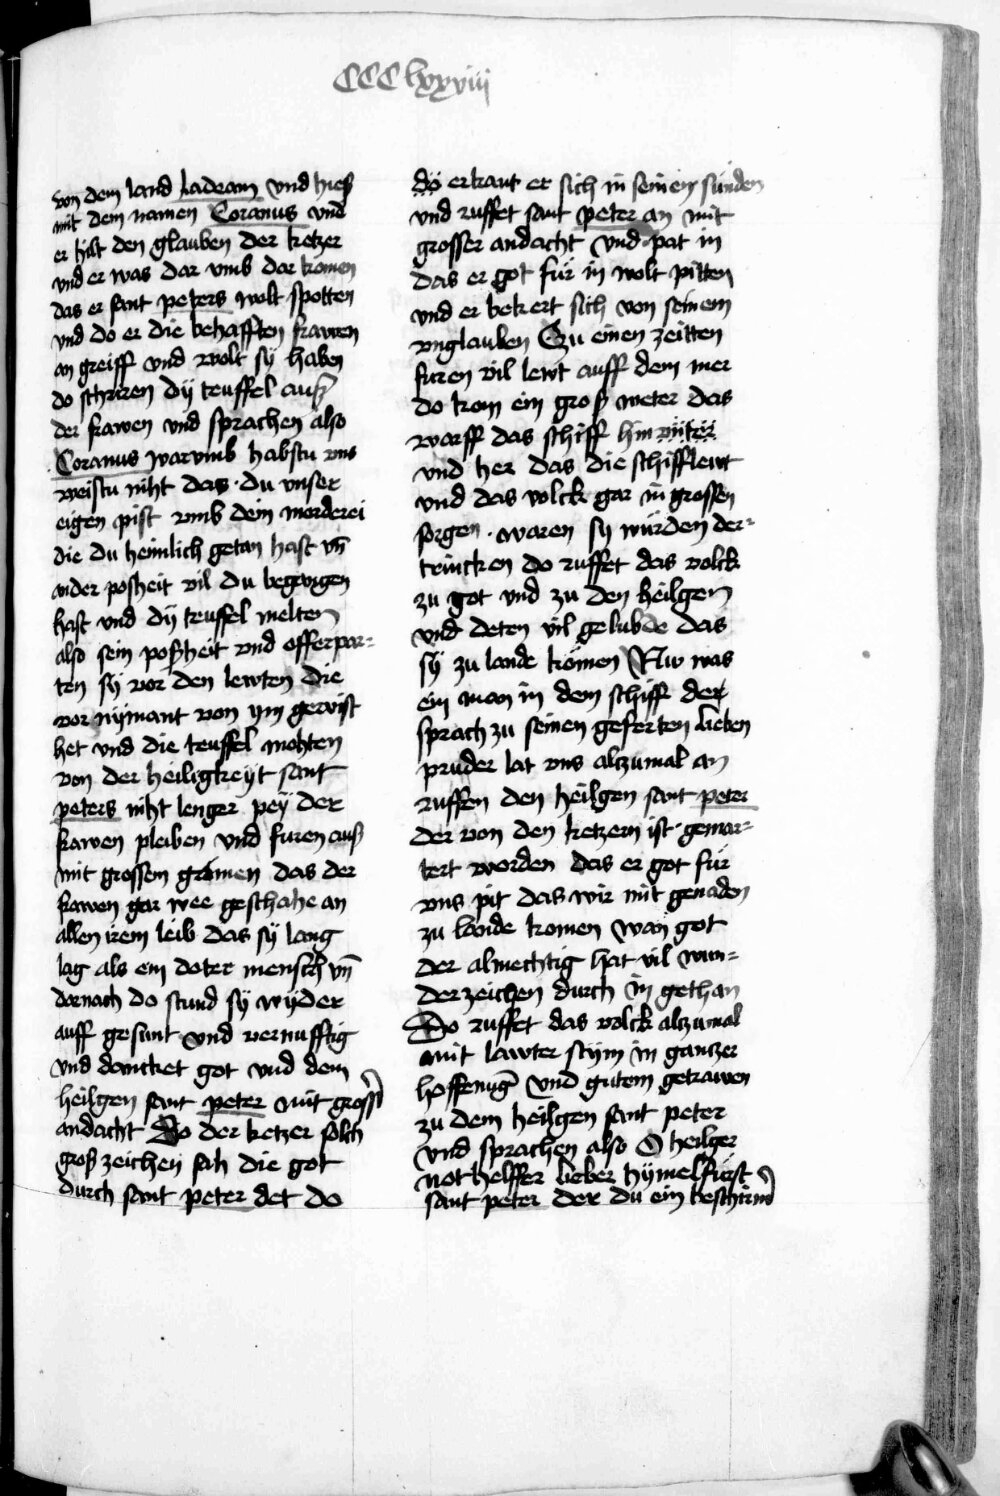 CCClxxviij
von dem land ladeam vnd hieß
mit dem namen Coranus vnd
er hilt den glauben der ketzer
vnd er was dar vmb dar komen
das er sant peters wolt spotten
vnd do er die behafften frawen
an greiff vnd wolt sy haben
do schriren dÿ teuffel auß
der frawen vnd sprachen also
Coranus warvmb habstu vns
weistu niht das du vnser
eigen pist vmb dein morderei
die du heimlich getan hast vn̄
ander posheit vil du begangen
hast vnd dÿ teuffel melten
also sein poßheit vnd offerpar=
ten sÿ vor den lewten die
vor nÿmant von ym gewist
het vnd die teuffel mohten
von der heiligkeÿt sant
peters niht lenger peÿ der
frawen pleiben vnd furen auß
mit grossem grāmen das der
frawen gar wee geschahe an
allen irem leib das sÿ lang
lag als ein doter mensch vn̄
darnach do stund sÿ wÿder
auff gesunt vnd vernufftig
vnd dancket got vnd dem
heilgen sant peter mit gross̄
andacht Do der ketzer solch
groß zeichen sah die got
durch sant peter det do
do erkant er sich in seinen sunden
vnd ruffet sant peter an mit
grosser andacht vnd pat in
das er got für in wolt pitten
vnd er bekert sich von seinem
vnglauben Czu einen zeitten
furen vil lewt auff dem mer
do kom ein groß weter das
warff das schiff hin
vnd her das die schifflewt
vnd das volck gar in grossen
sorgen waren sy würden der=
trincken do ruffet das volck
zu got vnd zu den heilgen
vnd deten vil gelubde das
sÿ zu lande kömen Nw was
ein man in dem schiff der
sprach zu seinen geferten lieben
pruder lat vns alczumal an
ruffen den heilgen sant peter
der von den ketzern ist gemar=
tert worden das er got für
vns pit das wir mit genaden
zu lande komen wan got
der almechtig hat vil wun=
derzeichen durch in gethan
Do ruffet das volck alczumal
mit lawter stÿm in ganczer
hoffenūg vnd gutem getrawen
zu dem heilgen sant peter
vnd sprachen also O heilger
nothelffer lieber hÿmelfürst
sant peter der du ein beschirm̄